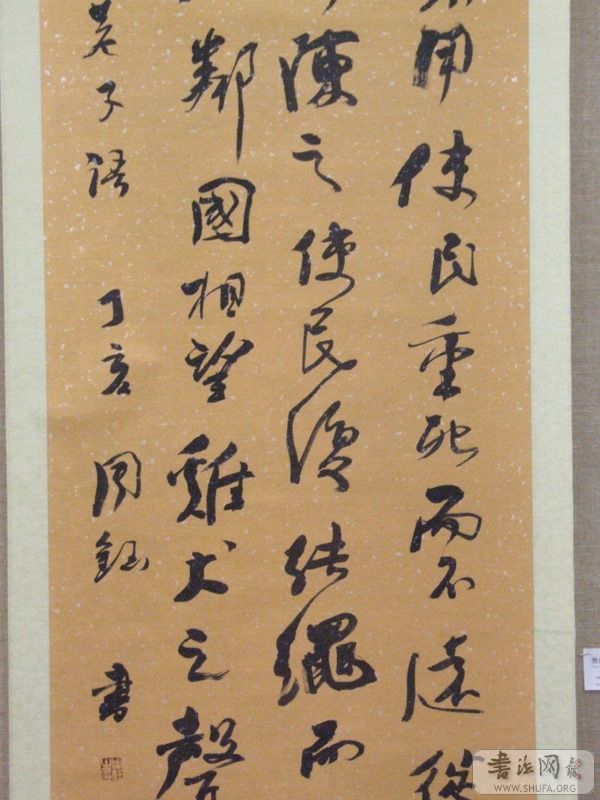 用使民重死而不遠徙
陳之使民復結繩而
鄰國相望雞犬之聲
老子語 丁亥 周鈺 書
书法网
WWW.SHUFA.ORG